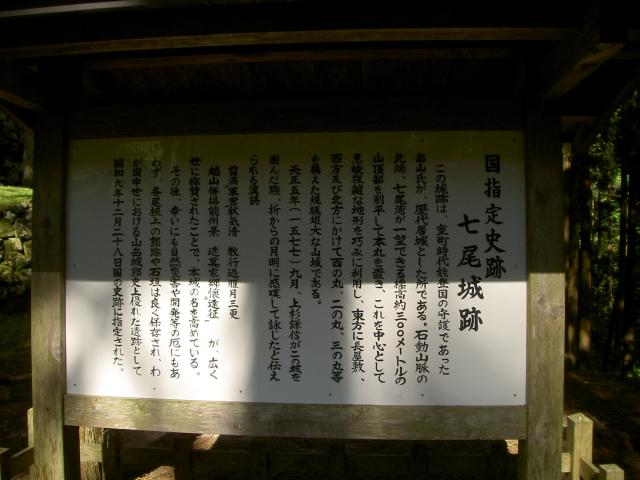 国指定史跡
七尾城跡
この城跡は、室町時代能登国の守護であった
畠山氏が、歴代居城とした所である。石動山脈の
北端、七尾湾が一望できる標高約三〇〇メートルの
山頂部を削平して本丸を置き、これを中心として
急峻複雑な地形を巧みに利用し、東方に長屋敷、
西方及び北方にかけて西の丸、二の丸、三の丸等
を構えた規模雄大な山城である。
天正五年(一五七七)九月、上杉謙信がこの城を
囲んだ際、折からの月明に感嘆して詠じたと伝え
られる漢詩
霜満軍営秋気清 数行過雁月三更
越山併得能州景 遮莫家郷憶遠征 が、広く
世に称賛されたことで、本城の名を高めている。
その後、幸いにも自然災害や開発等の厄にもあ
わず、各尾根上の郭跡や石垣は良く保存され、わ
が国中世における山岳城郭史上優れた遺跡として
昭和九年十二月二十八日国の史跡に指定された。